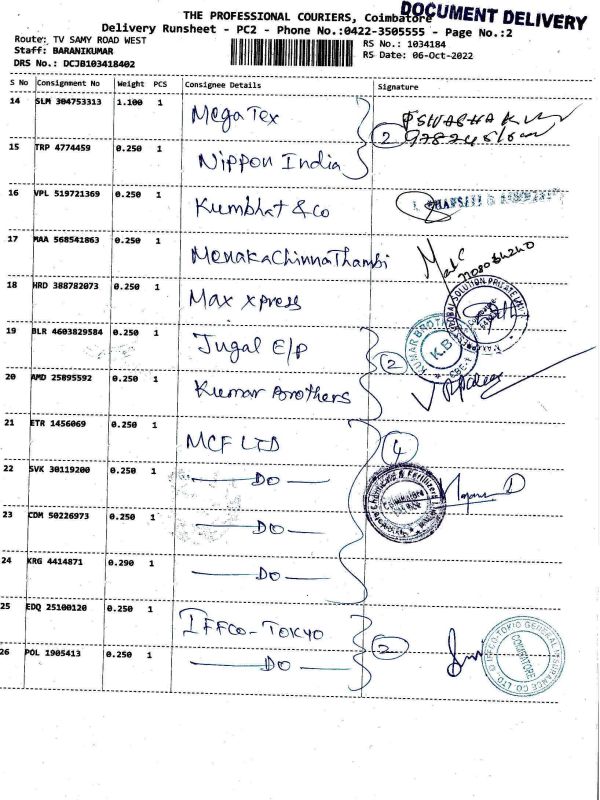 DOCUMENT DELIVERY
THE PROFESSIONAL COURIERS, Coimbatore
Delivery Runsheet - PC2 - Phone No.:0422-3505555 - Page No.:2
Route: TV SAMY ROAD WEST
RS No.: 1034184
Staff: BARANIKUMAR
RS Date: 06-Oct-2022
DRS No.: DCJB103418402
S No Consignment No Weight PCS Consignee Details Signature
14 SLM 304753313 1.100 1 Mega Tex
2
15 TRP 4774459 0.250 1 Nippon India
16 VPL 519721369 0.250 1 Kumbhat & Co
17 MAA 568541863 0.250 1 Menaka Chinna Thambi
18 HRD 388782073 0.250 1 Max xpress
19 BLR 4603829584 0.250 1 Jugal E/P
KUMAR BROTHERS K.B
2
20 AMD 25895592 0.250 1 Kumar Brothers
21 ETR 1456069 0.250 1 MCF LTD
4
22 SVK 30119200 0.250 1 DO
23 CDM 50226973 0.250 1 DO
24 KRG 4414871 0.290 1 DO
25 EDQ 25100120 0.250 1 IFFCO - TOKYO
2
IFFCO-TOKIO GENERAL INSURANCE CO. LTD. COIMBATORE
26 POL 1905413 0.250 1 DO